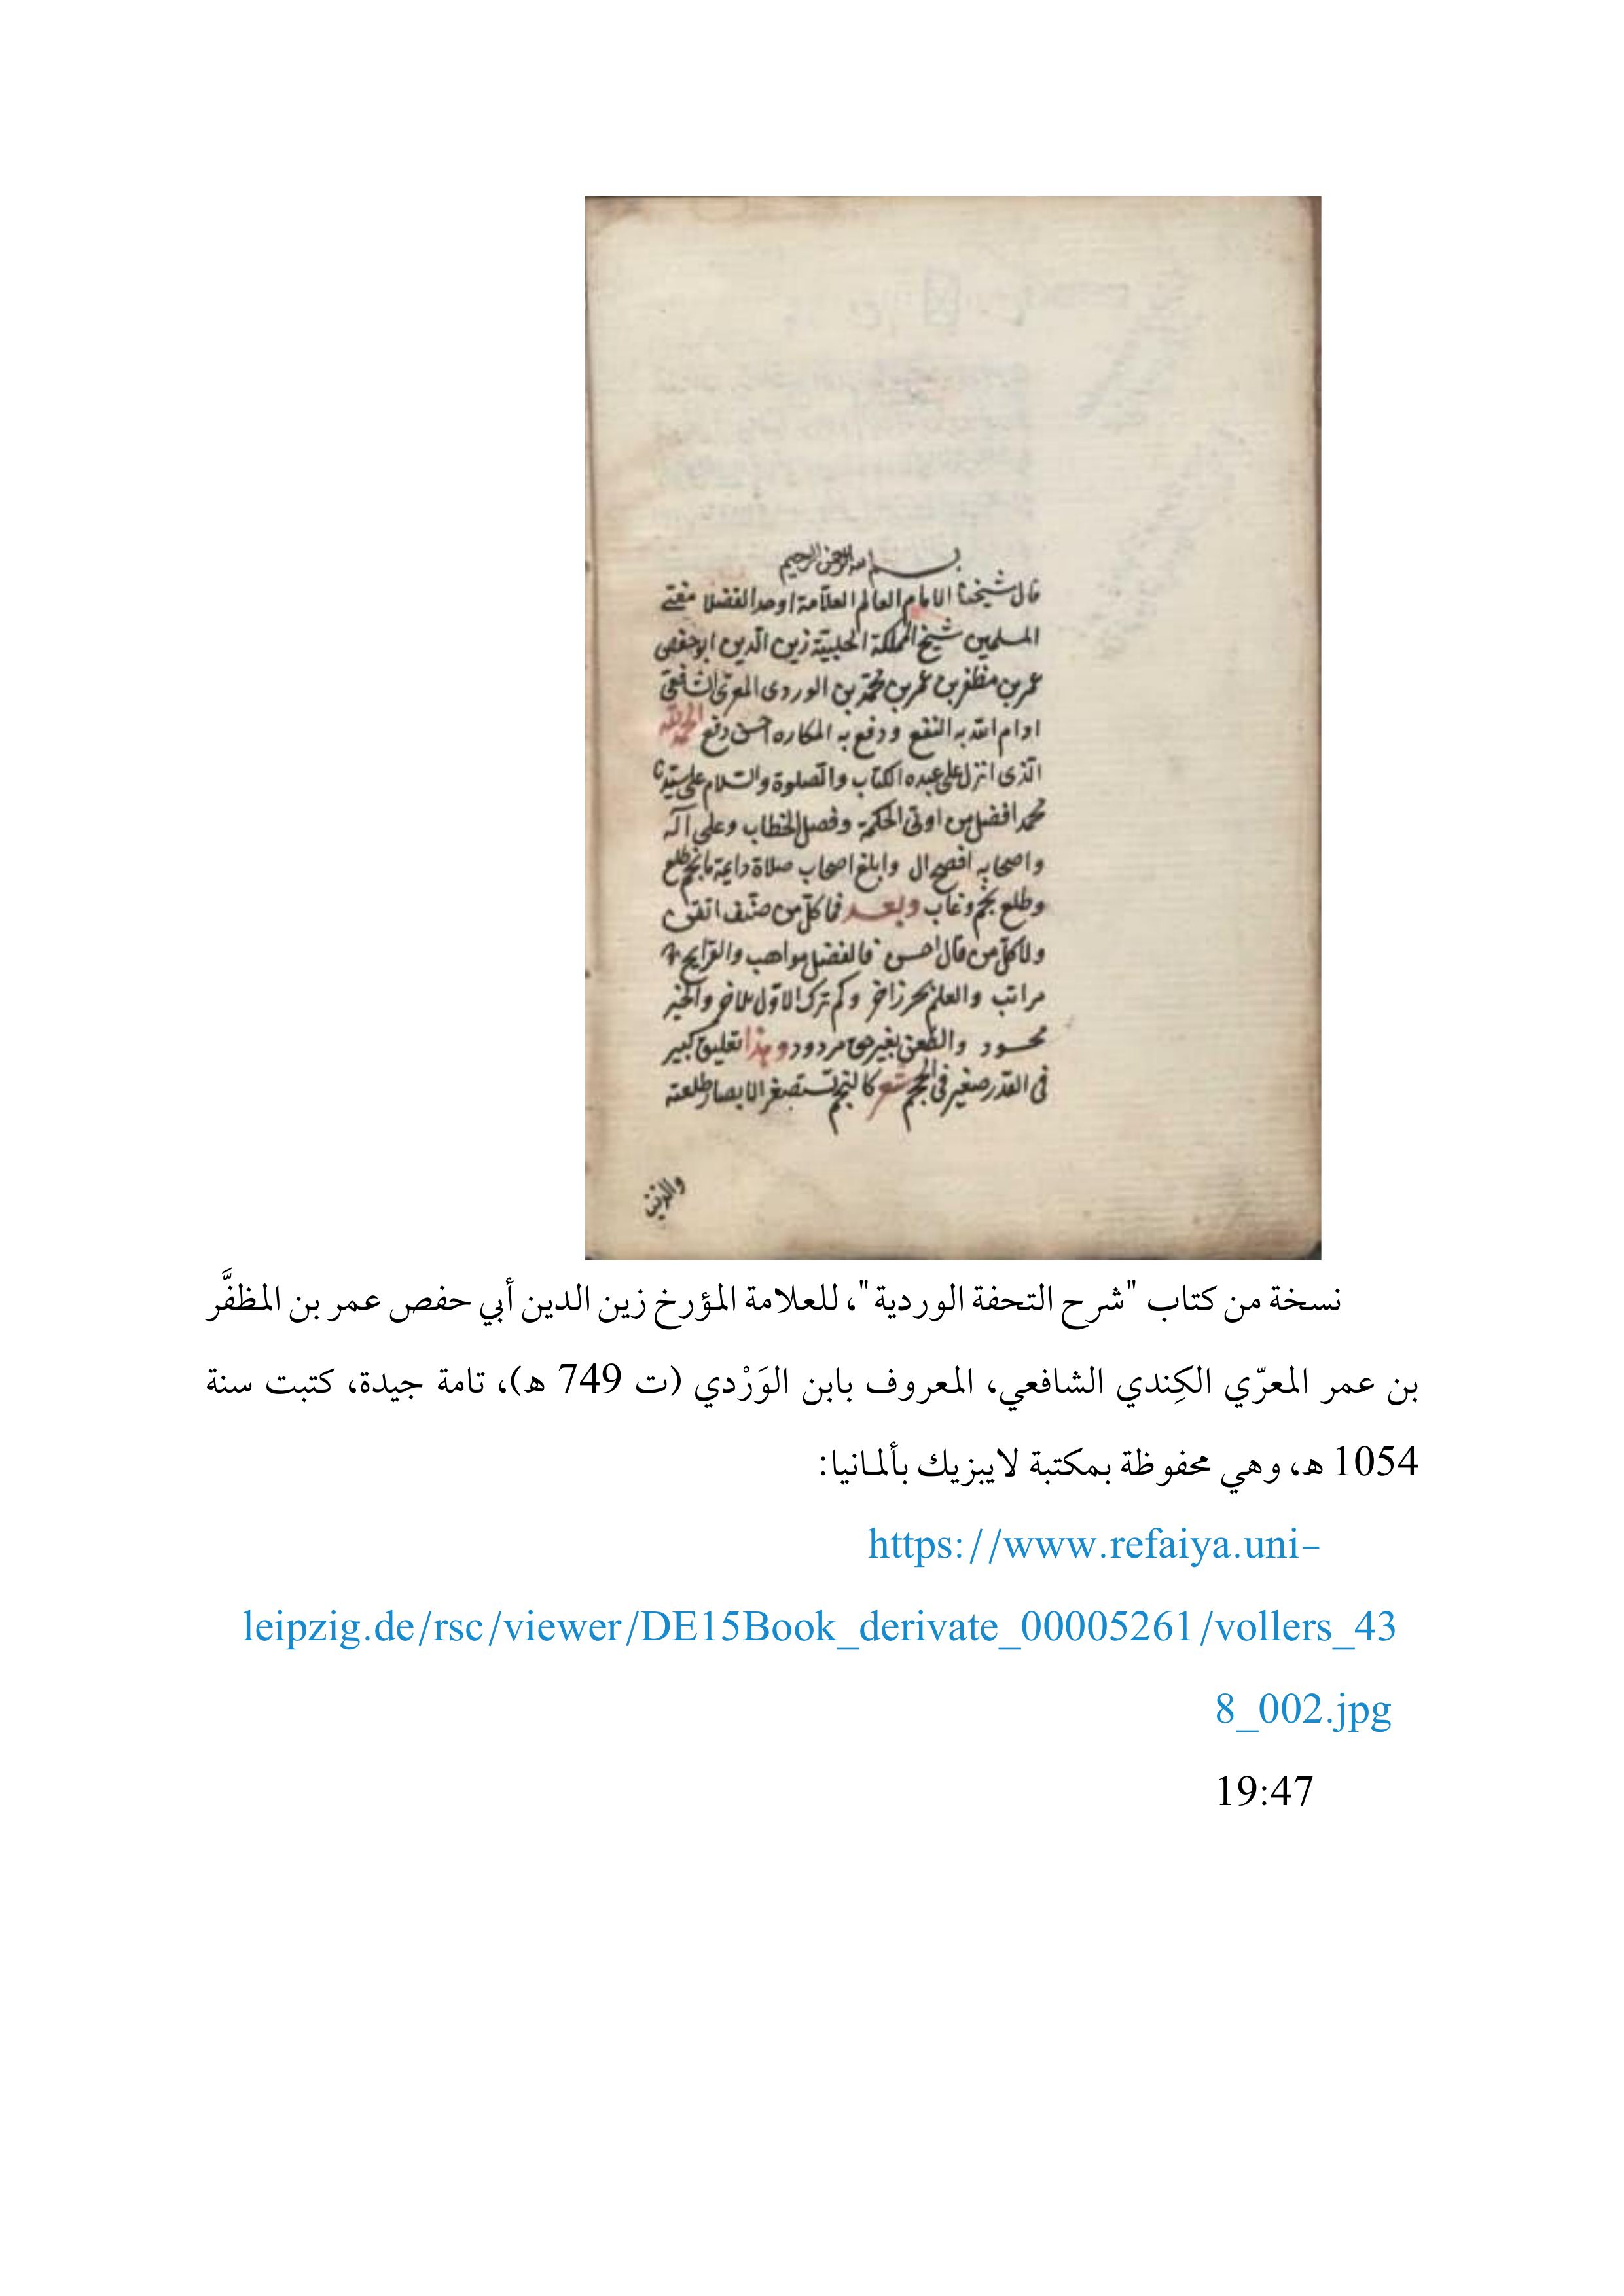 بسم الله الرحمن الرحيم
قال شيخنا الامام العالم العلّامة اوحد الفضلا مفتى
المسلمين شيخ المملكة الحلبيّة زين الدّين ابو حفص
عمر بن مظفر بن عمر بن محمّد بن الوردى المعرّى الشّافعى
ادام اللّه به النفع ودفع به المكاره احسن دفع الحمد للّه
الّذى انزل على عبده الكتاب والصّلوة والسّلام على سيّدنا
محمد افضل من اوتى الحكمة وفصل الخطاب وعلى آله
واصحابه افصح ال وابلغ اصحاب صلاة دايمة ما نجم طلع
وطلع نجم وغاب وبعد فما كلّ من صنّف اتقن
ولا كلّ من قال احسن فالفضل مواهب والقرايح
مراتب والعلم بحر زاخر وكم ترك الاوّل للاخر والخير
محسود والطّعن بغير حق مردود وهذا تعليق كبير
فى القدر صغير فى الحجم شعر كالنجم تستصغر الابصار طلعته
والذنب
نسخة من كتاب "شرح التحفة الوردية"، للعلامة المؤرخ زين الدين أبي حفص عمر بن المظفَّر
بن عمر المعرّي الكِندي الشافعي، المعروف بابن الوَرْدي (ت 749 هـ)، تامة جيدة، كتبت سنة
1054 هـ، وهي محفوظة بمكتبة لايبزيك بألمانيا:
https://www.refaiya.uni-
leipzig.de/rsc/viewer/DE15Book_derivate_00005261/vollers_43
8_002.jpg
19:47